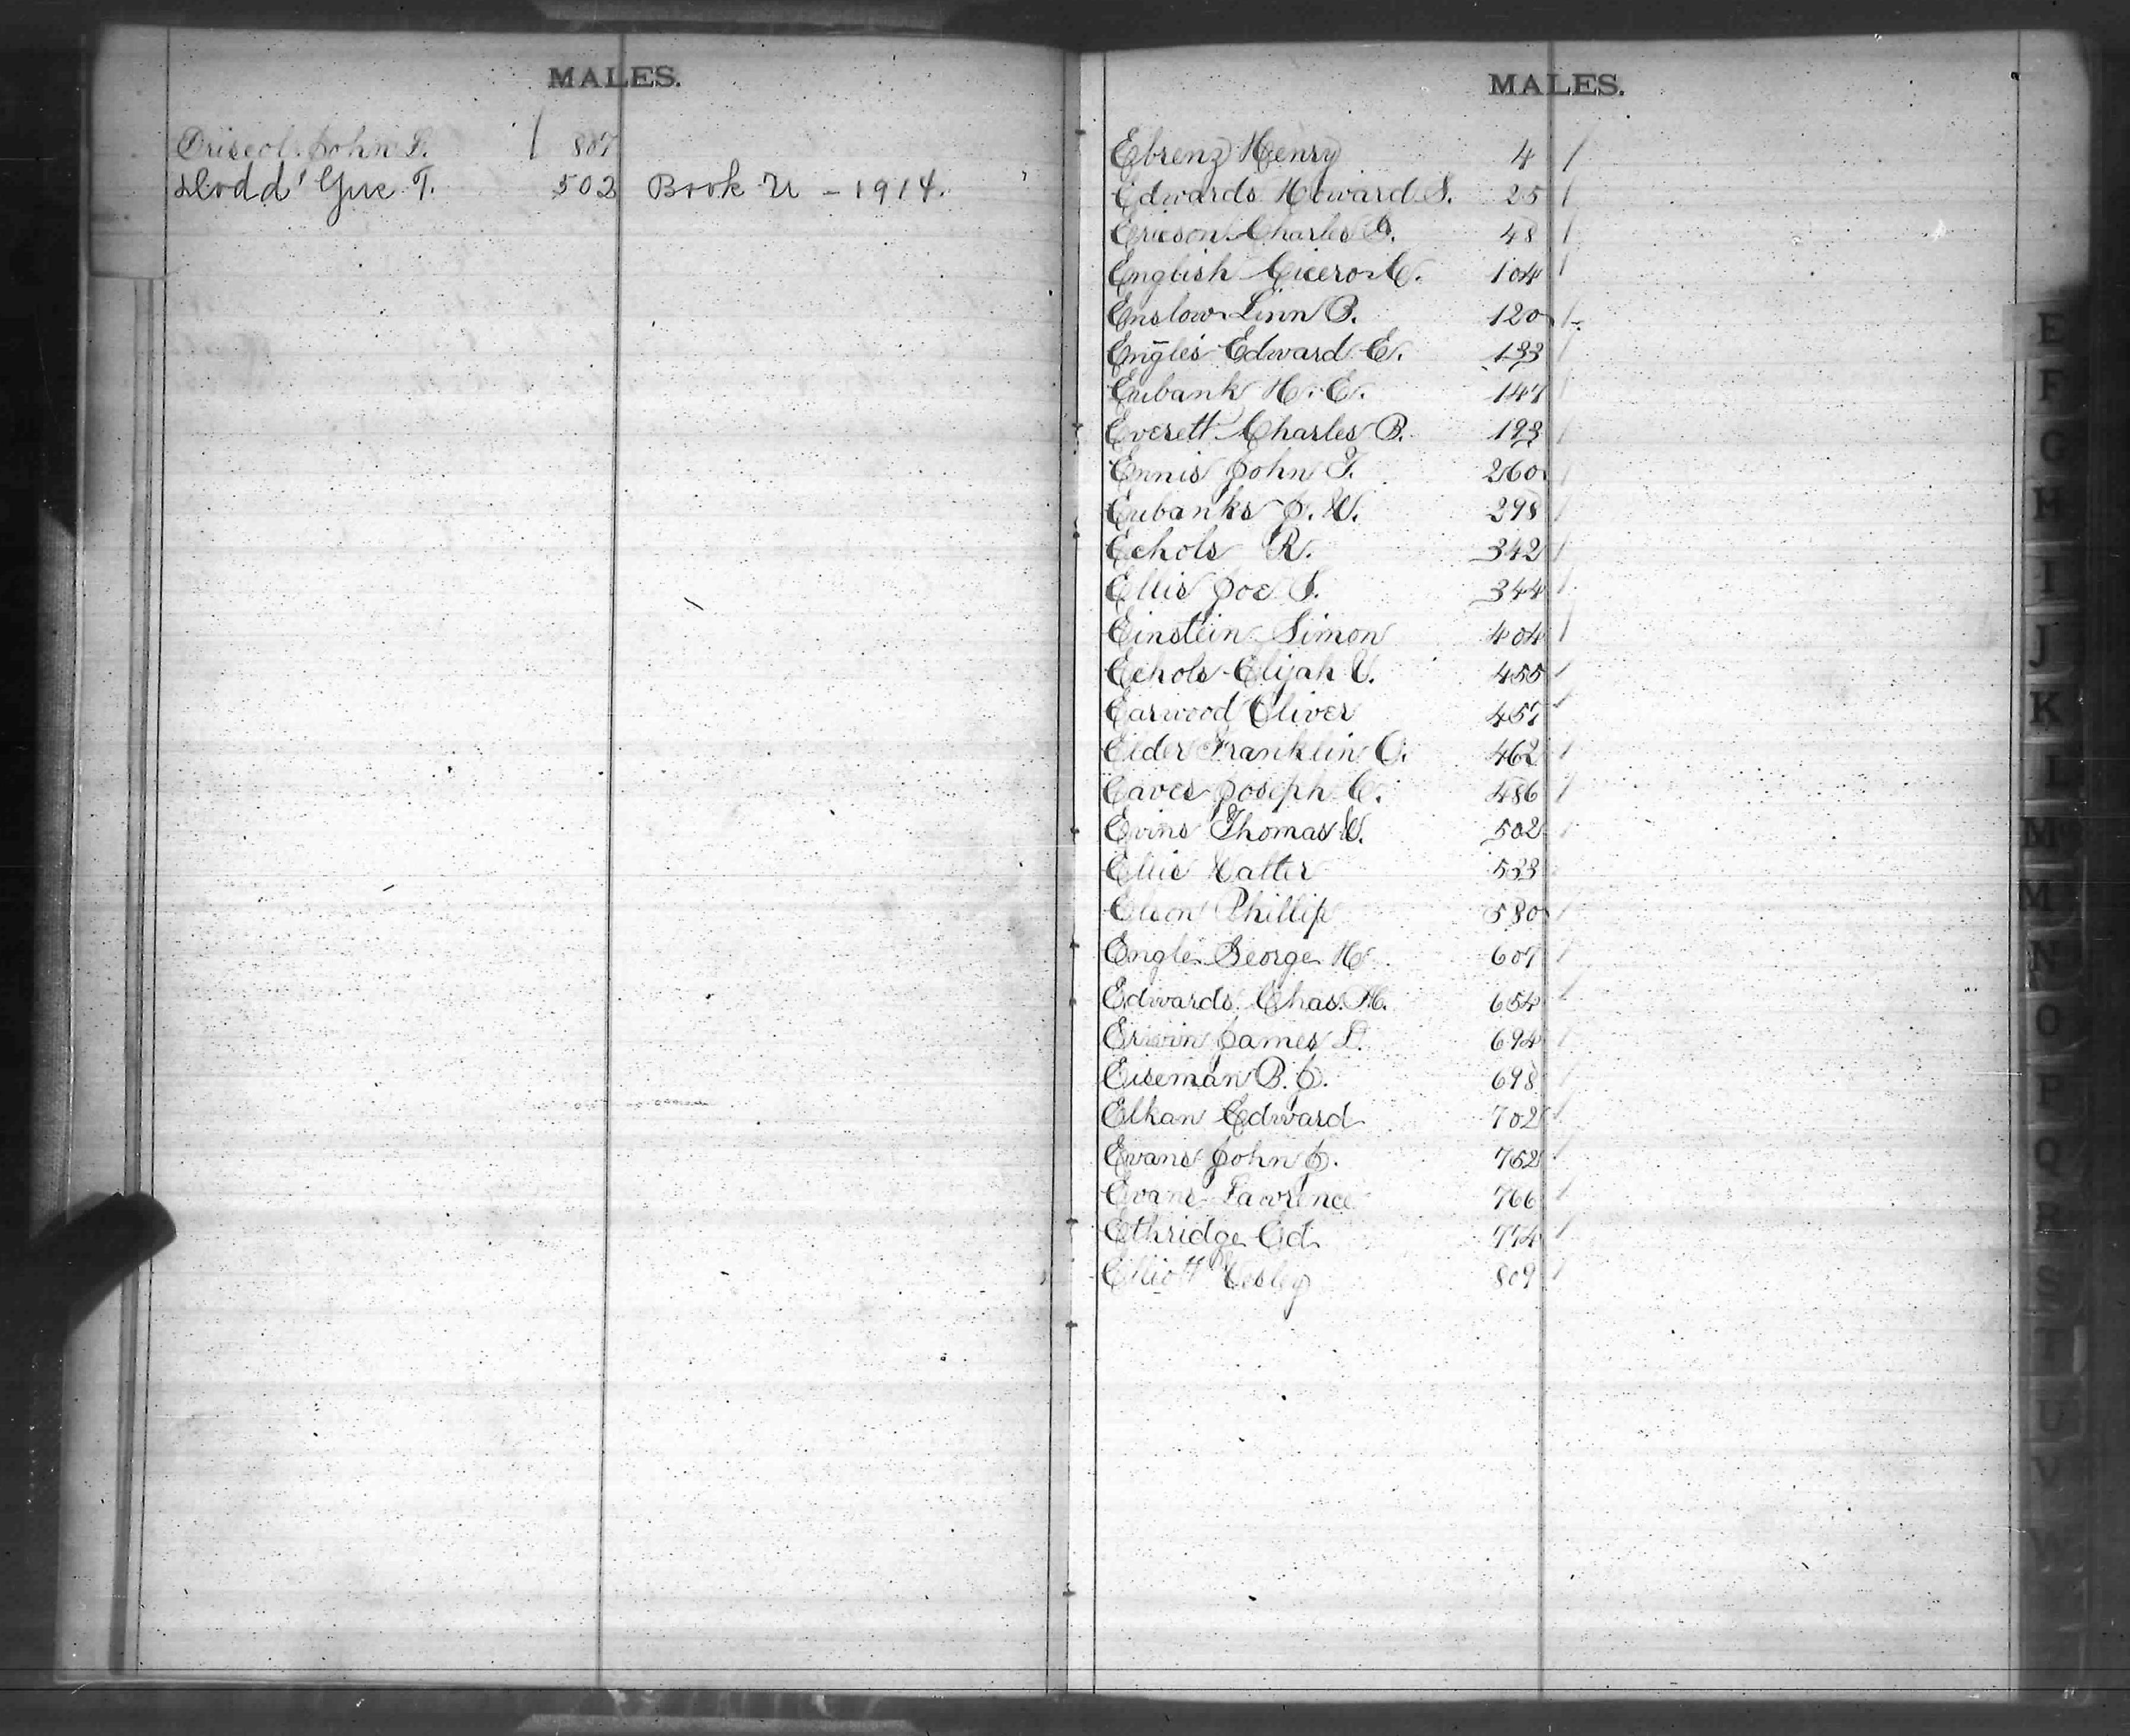 MALES.
Driscol John L. 807
Dodd Gus T. 502 Book U - 1914.
MALES.
Ebrenz Henry 4
Edwards Howard S. 25
Ericson Charles G. 48
English Cicero C. 104
Enslow Linn B. 120
Engles Edward E. 133
Eubank H. E. 147
Everett Charles B. 193
Ennis John T. 260
Eubanks J. W. 298
Echols R. 342
Ellis Joe S. 344
Einstein Simon 404
Echols Elijah V. 455
Earwood Oliver 457
Eider Franklin O. 462
Eaves Joseph C. 486
Evins Thomas W. 502
Ellis Walter 533
Elson Phillip 580
Engle George H. 607
Edwards Chas. H. 654
Erwin James L. 694
Eiseman B. J. 698
Elkan Edward 702
Evans John J. 752
Evans Lawrence 766
Ethridge Ed. 774
Elliott Lesley 809
E
F
G
H
I
J
K
L
M
M
N
O
P
Q
R
S
T
U
V
W